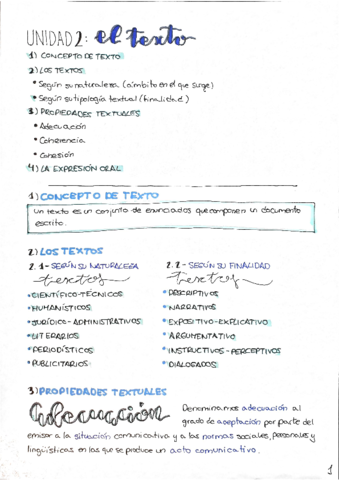 UNIDAD 2: el texto
1) CONCEPTO DE TEXTO
2) LOS TEXTOS
• Según su naturaleza (ámbito en el que surge)
• Según su tipología textual (finalidad)
3) PROPIEDADES TEXTUALES
• Adecuación
• Coherencia
• Cohesión
4) LA EXPRESIÓN ORAL
1) CONCEPTO DE TEXTO
Un texto es un conjunto de enunciados que componen un documento
escrito.
2) LOS TEXTOS
2.1- SEGÚN SU NATURALEZA
textos
• CIENTÍFICO-TÉCNICOS
• HUMANÍSTICOS
• JURÍDICO-ADMINISTRATIVOS
• LITERARIOS
• PERIODÍSTICOS
• PUBLICITARIOS
2.2- SEGÚN SU FINALIDAD
textos
• DESCRIPTIVOS
• NARRATIVOS
• EXPOSITIVO-EXPLICATIVO
• ARGUMENTATIVO
• INSTRUCTIVOS-PERCEPTIVOS
• DIALOGADOS
3) PROPIEDADES TEXTUALES
Adecuación
Denominamos adecuación al
grado de adaptación por parte del
emisor a la situación comunicativa y a las normas sociales, personales y
lingüísticas en las que se produce un acto comunicativo.
1